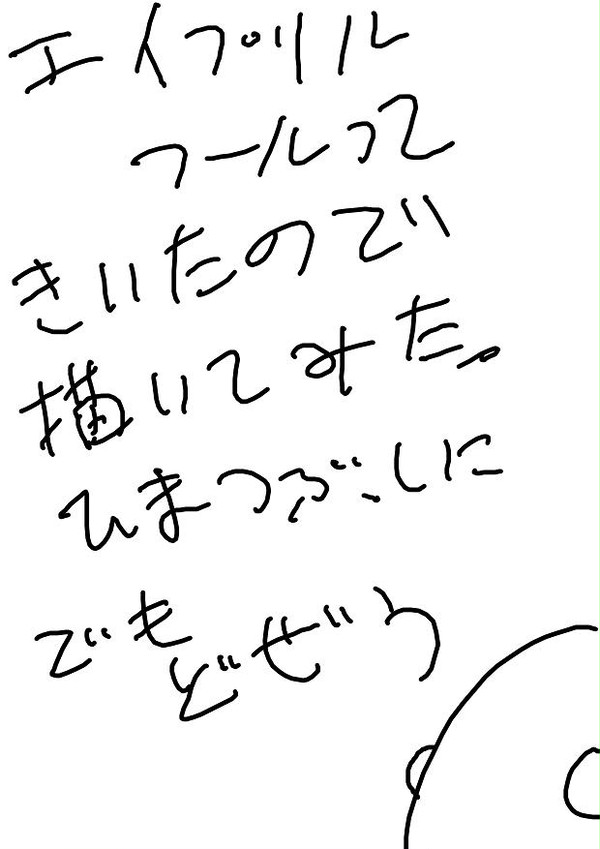 エイプリル
フールって
きいたので
描いてみた。
ひまつぶしに
でも
どぜう